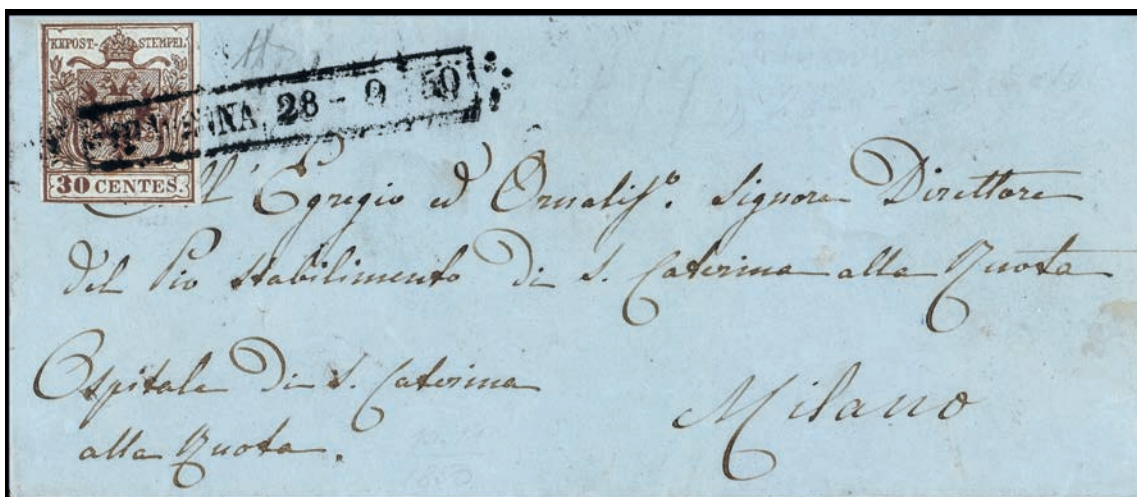 KKPOST-STEMPEL
30 CENTES.
28 - 9 50
All' Egregio ed Ornatiss.º Signore Direttore
del Pio Stabilimento di S. Caterina alla Ruota
Ospitale di S. Caterina
alla Ruota.
Milano